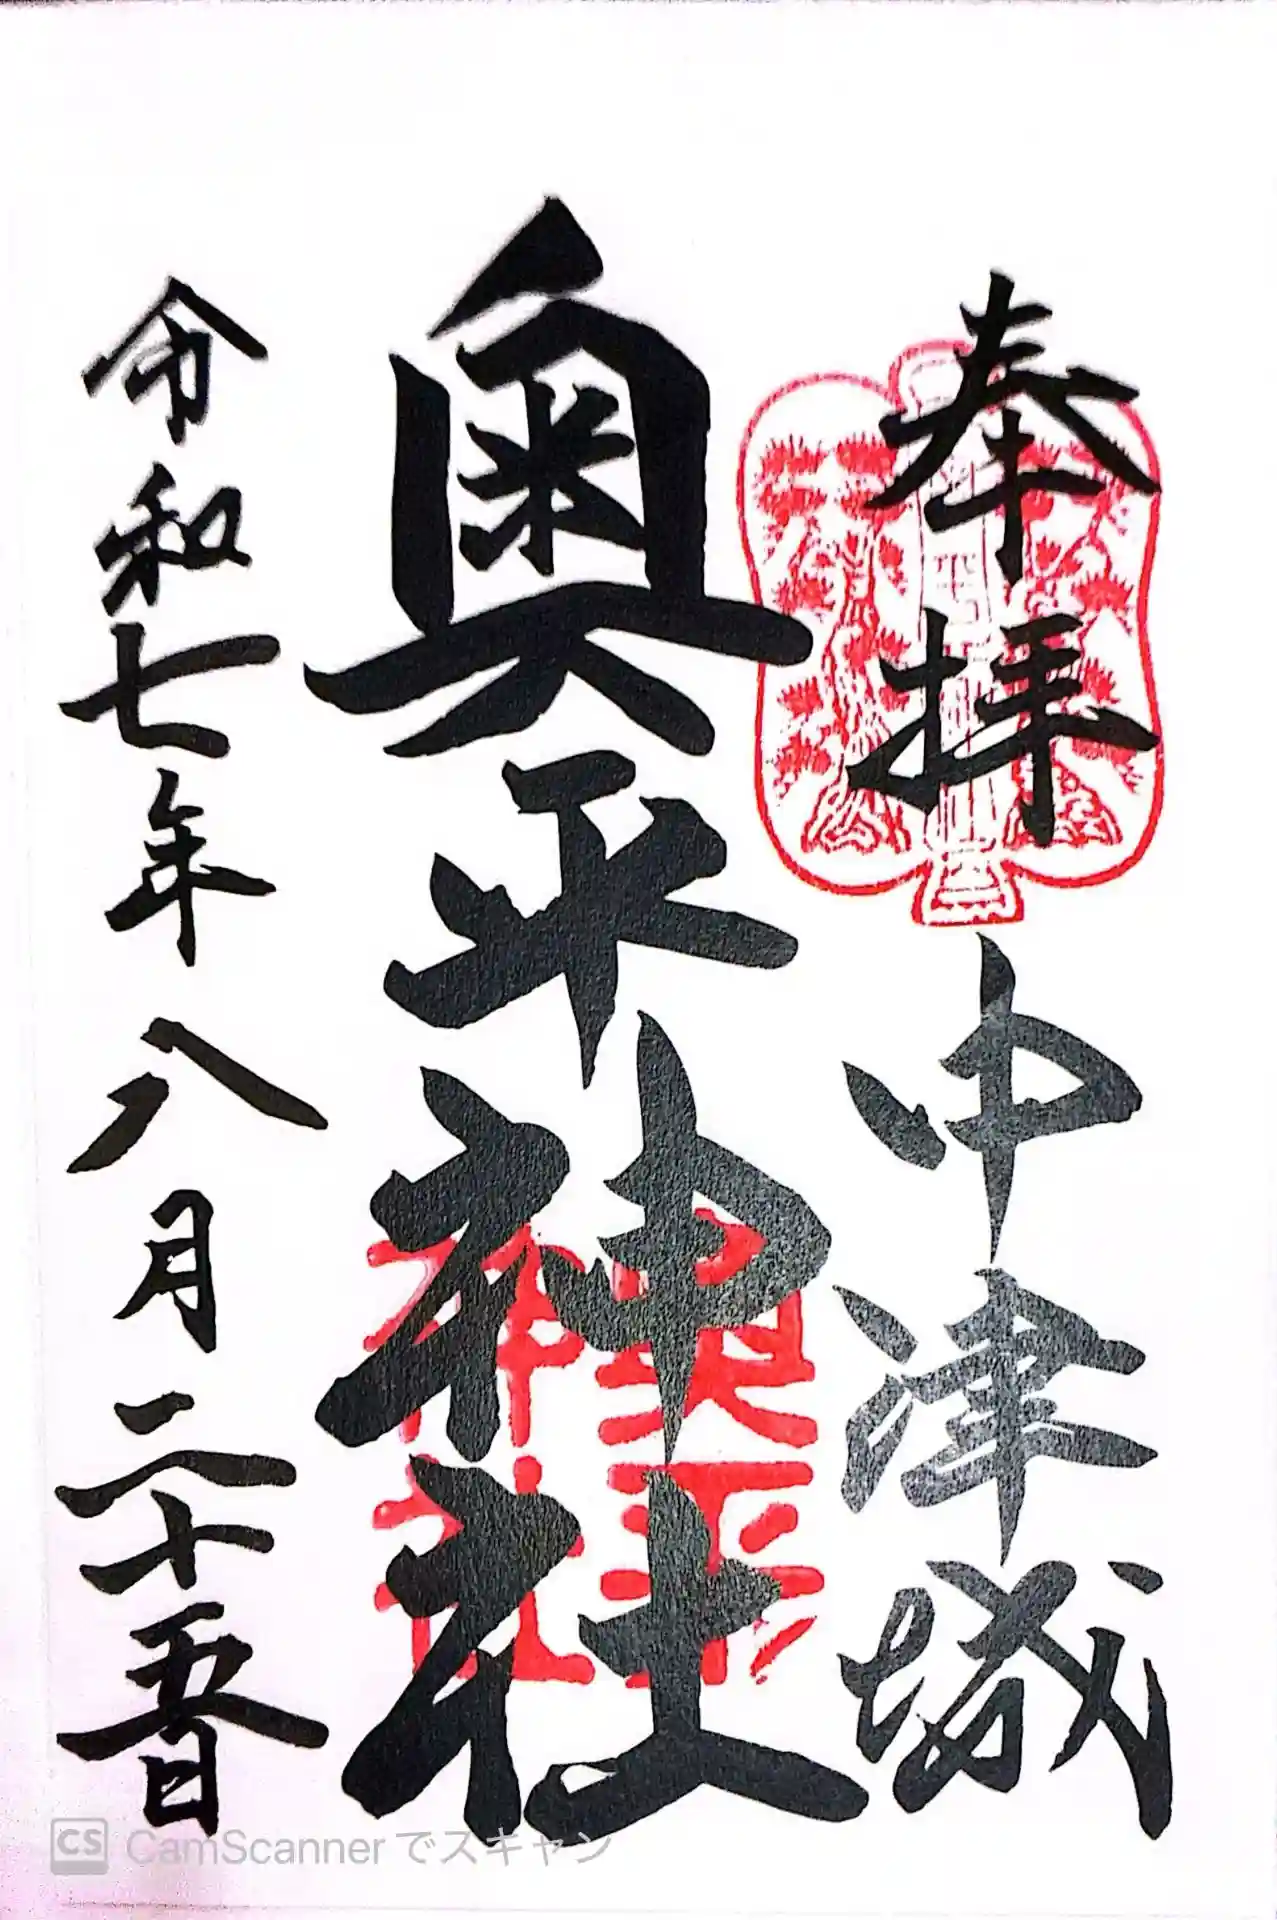 奉拝
中津城
奥平神社
奥平
神社
令和七年八月二十五日
CS CamScanner でスキャン